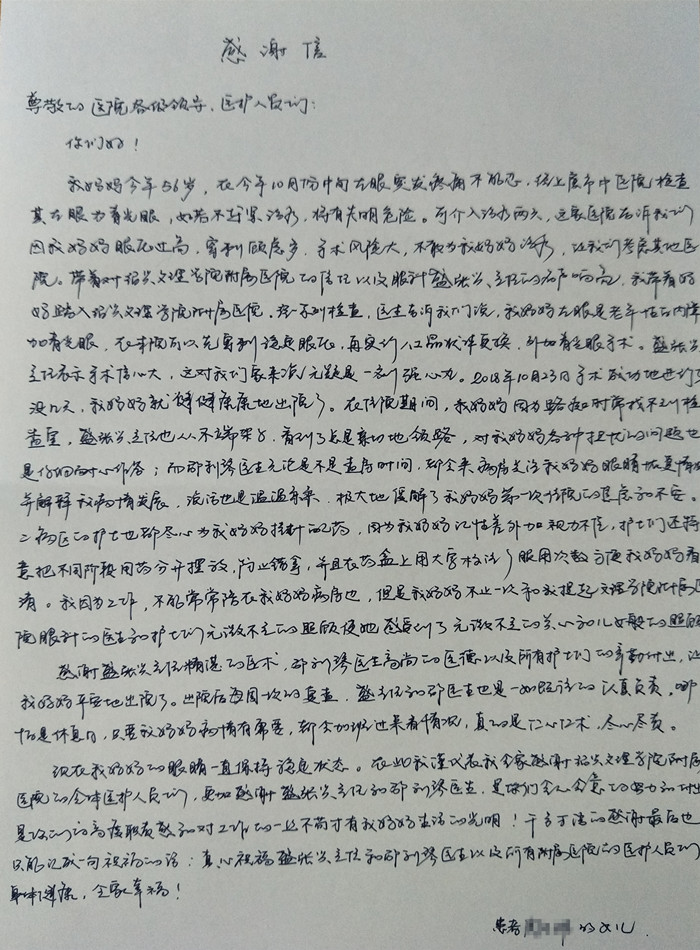 感谢信
尊敬的医院各级领导、医护人员们:
你们好!
我妈妈今年56岁,在今年10月份中旬左眼突发疼痛不能忍,经上虞市中医院检查
其左眼为青光眼,如若不赶紧治疗,将有失明危险。可介入治疗两天,这家医院告诉我们
因我妈妈眼压过高,穿刺顾虑多,手术风险大,不敢为我妈妈治疗,让我们考虑其他医
院。带着对绍兴文理学院附属医院的信任以及眼科盛张兴主任的名声响亮,我带着妈
妈踏入绍兴文理学院附属医院。经一系列检查,医生告诉我们说,我妈妈左眼是老年性白内障
加青光眼,在来院前以先穿刺稳定眼压,再实行人工晶状体更换,外加青光眼手术。盛张兴
主任表示手术信心大,这对我们家来说无疑是一剂强心剂。2018年10月23日手术成功地进行了
没几天,我妈妈就健健康康地出院了。在住院期间,我妈妈因为路痴时常找不到检
查室,盛张兴主任也从不端架子,看到了总是亲切地领路,对我妈妈各种担忧的问题也
是仔细耐心作答;而邵利琴医生无论是不是查房时间,都会来病房关注我妈妈眼睛恢复情况
并解释我病情发展,说话也是温温有柔,极大地缓解了我妈妈第一次住院的焦虑和不安。
二病区的护士也都尽心为我妈妈挂针配药,因为我妈妈记性差外加视力不佳,护士们还特
意把不同阶段用药分开摆放,防止错拿,并且在药盒上用大字标注了服用次数方便我妈妈看
清。我因为工作,不能常常陪在我妈妈病房边,但是我妈妈不止一次和我提起文理学院附属医
院眼科的医生和护士们无微不至的照顾使她感受到了无微不至的关心和儿女般的照顾
感谢盛张兴主任精湛的医术,邵利琴医生高尚的医德以及所有护士们的辛勤付出,让
我妈妈平安地出院了。出院后每周一次的复查,盛主任和邵医生也是一如既往的认真负责。哪
怕是休息日,只要我妈妈病情有需要,都会加班过来看情况,真的是仁心仁术,尽心尽责。
现在我妈妈的眼睛一直保持稳定状态。在此我谨代表我全家感谢绍兴文理学院附属
医院的全体医护人员们,更加感谢盛张兴主任和邵利琴医生,是你们全心全意的努力和付出
是你们的高度职责感和对工作的一丝不苟才有我妈妈生活的光明!千言万语的感谢最后也
只能汇成一句祝福的话:真心祝福盛张兴主任和邵利琴医生以及所有附属医院的医护人员们
身体健康,全家幸福!
患者 的女儿